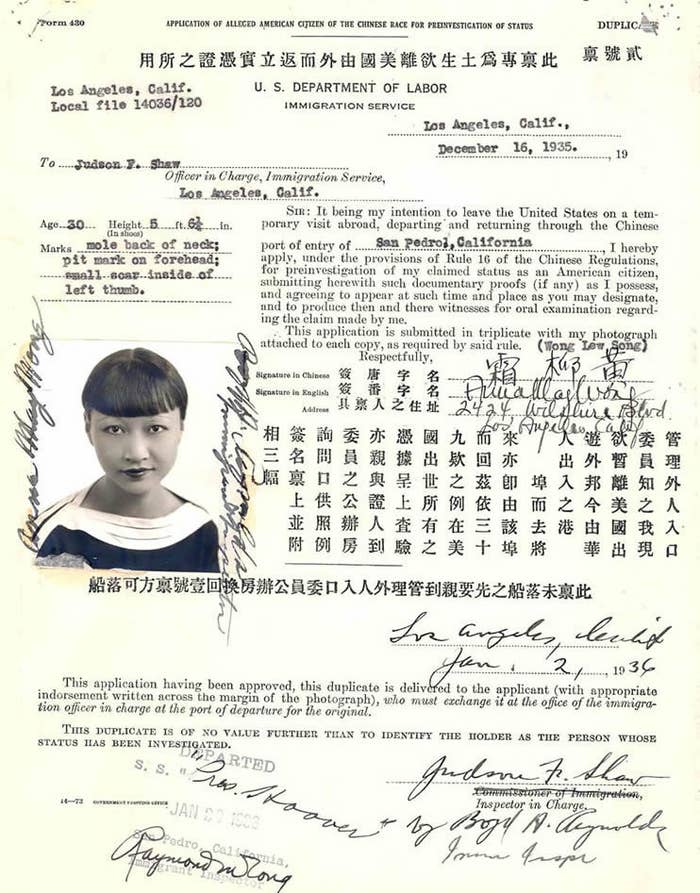 Form 430
APPLICATION OF ALLEGED AMERICAN CITIZEN OF THE CHINESE RACE FOR PREINVESTIGATION OF STATUS
DUPLICATE
貳號禀
此禀專為土生欲離美國由外而返立實憑證之所用
Los Angeles, Calif.
Local file 14036/120
U. S. DEPARTMENT OF LABOR
IMMIGRATION SERVICE
Los Angeles, Calif.,
December 16, 1935. , 19
To Judson F. Shaw
Officer in Charge, Immigration Service,
Los Angeles, Calif.
Age 30 Height 5 ft. 6½ in.
(In shoes)
Marks mole back of neck;
pit mark on forehead;
small scar inside of
left thumb.
SIR: It being my intention to leave the United States on a tem-
porary visit abroad, departing and returning through the Chinese
port of entry of San Pedro, California, I hereby
apply, under the provisions of Rule 16 of the Chinese Regulations,
for preinvestigation of my claimed status as an American citizen,
submitting herewith such documentary proofs (if any) as I possess,
and agreeing to appear at such time and place as you may designate,
and to produce then and there witnesses for oral examination regard-
ing the claim made by me.
This application is submitted in triplicate with my photograph
attached to each copy, as required by said rule. (Wong Lew Song)
Respectfully,
Signature in Chinese 簽唐字名 黃柳霜
Signature in English 簽番字名 Anna May Wong
Address 具禀人之住址 2424, Wilshire Blvd.
Los Angeles, Calif
Anna May Wong
管理外人入口
委員知之我現
欲暫離美國出
遊外邦今由華
人出入之港
埠而去將
來亦即由該埠
而回茲依三十
九欵之例在美
國出世所有之
憑據呈上查驗
亦親與證人到
委員之公辦房
詢問口供照例
簽名禀上並附
相三幅
此禀未落船之先要親到管理外人入口委員公辦房換回壹號禀方可落船
Los Angeles, Calif
Jan. 2, 1936
This application having been approved, this duplicate is delivered to the applicant (with appropriate
indorsement written across the margin of the photograph), who must exchange it at the office of the immigra-
tion officer in charge at the port of departure for the original.
THIS DUPLICATE IS OF NO VALUE FURTHER THAN TO IDENTIFY THE HOLDER AS THE PERSON WHOSE
STATUS HAS BEEN INVESTIGATED.
DEPARTED
S. S. "Pres. Hoover"
Judson F. Shaw
Commissioner of Immigration,
Inspector in Charge.
14—73 GOVERNMENT PRINTING OFFICE
by Boyd H. Reynolds
Imm Inspr
San Pedro, California,
Immigrant Inspector